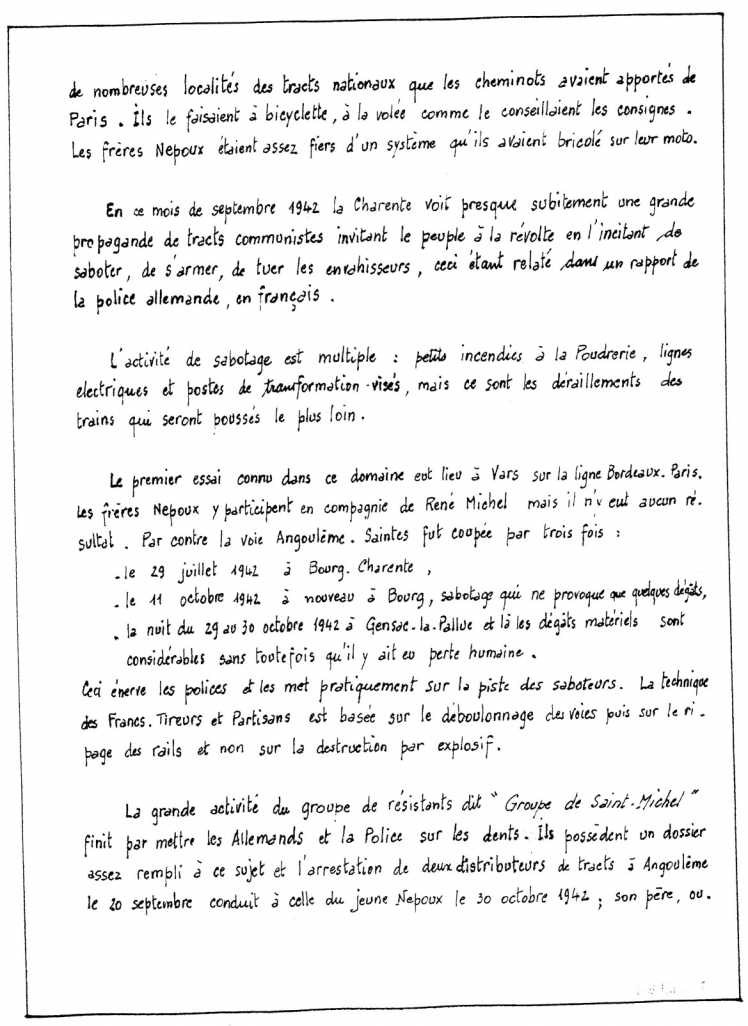 de nombreuses localités des tracts nationaux que les cheminots avaient apportés de
Paris. Ils le faisaient à bicyclette, à la volée comme le conseillaient les consignes.
Les frères Nepoux étaient assez fiers d'un système qu'ils avaient bricolé sur leur moto.
En ce mois de septembre 1942 la Charente voit presque subitement une grande
propagande de tracts communistes invitant le peuple à la révolte en l'incitant de
saboter, de s'armer, de tuer les envahisseurs, ceci étant relaté dans un rapport de
la police allemande, en français.
L'activité de sabotage est multiple : petits incendies à la Poudrerie, lignes
electriques et postes de transformation visés, mais ce sont les déraillements des
trains qui seront poussés le plus loin.
Le premier essai connu dans ce domaine eut lieu à Vars sur la ligne Bordeaux-Paris.
Les frères Nepoux y participent en compagnie de René Michel mais il n'y eut aucun ré-
sultat. Par contre la voie Angoulême-Saintes fut coupée par trois fois :
- le 29 juillet 1942 à Bourg-Charente,
- le 11 octobre 1942 à nouveau à Bourg, sabotage qui ne provoque que quelques dégâts,
- la nuit du 29 au 30 octobre 1942 à Gensac-la-Pallue et là les dégâts matériels sont
considérables sans toutefois qu'il y ait eu perte humaine.
Ceci énerve les polices et les met pratiquement sur la piste des saboteurs. La technique
des Francs-Tireurs et Partisans est basée sur le déboulonnage des voies puis sur le ri-
page des rails et non sur la destruction par explosif.
La grande activité du groupe de résistants dit "Groupe de Saint-Michel"
finit par mettre les Allemands et la Police sur les dents. Ils possèdent un dossier
assez rempli à ce sujet et l'arrestation de deux distributeurs de tracts à Angoulême
le 20 septembre conduit à celle du jeune Nepoux le 30 octobre 1942 ; son père, ou-